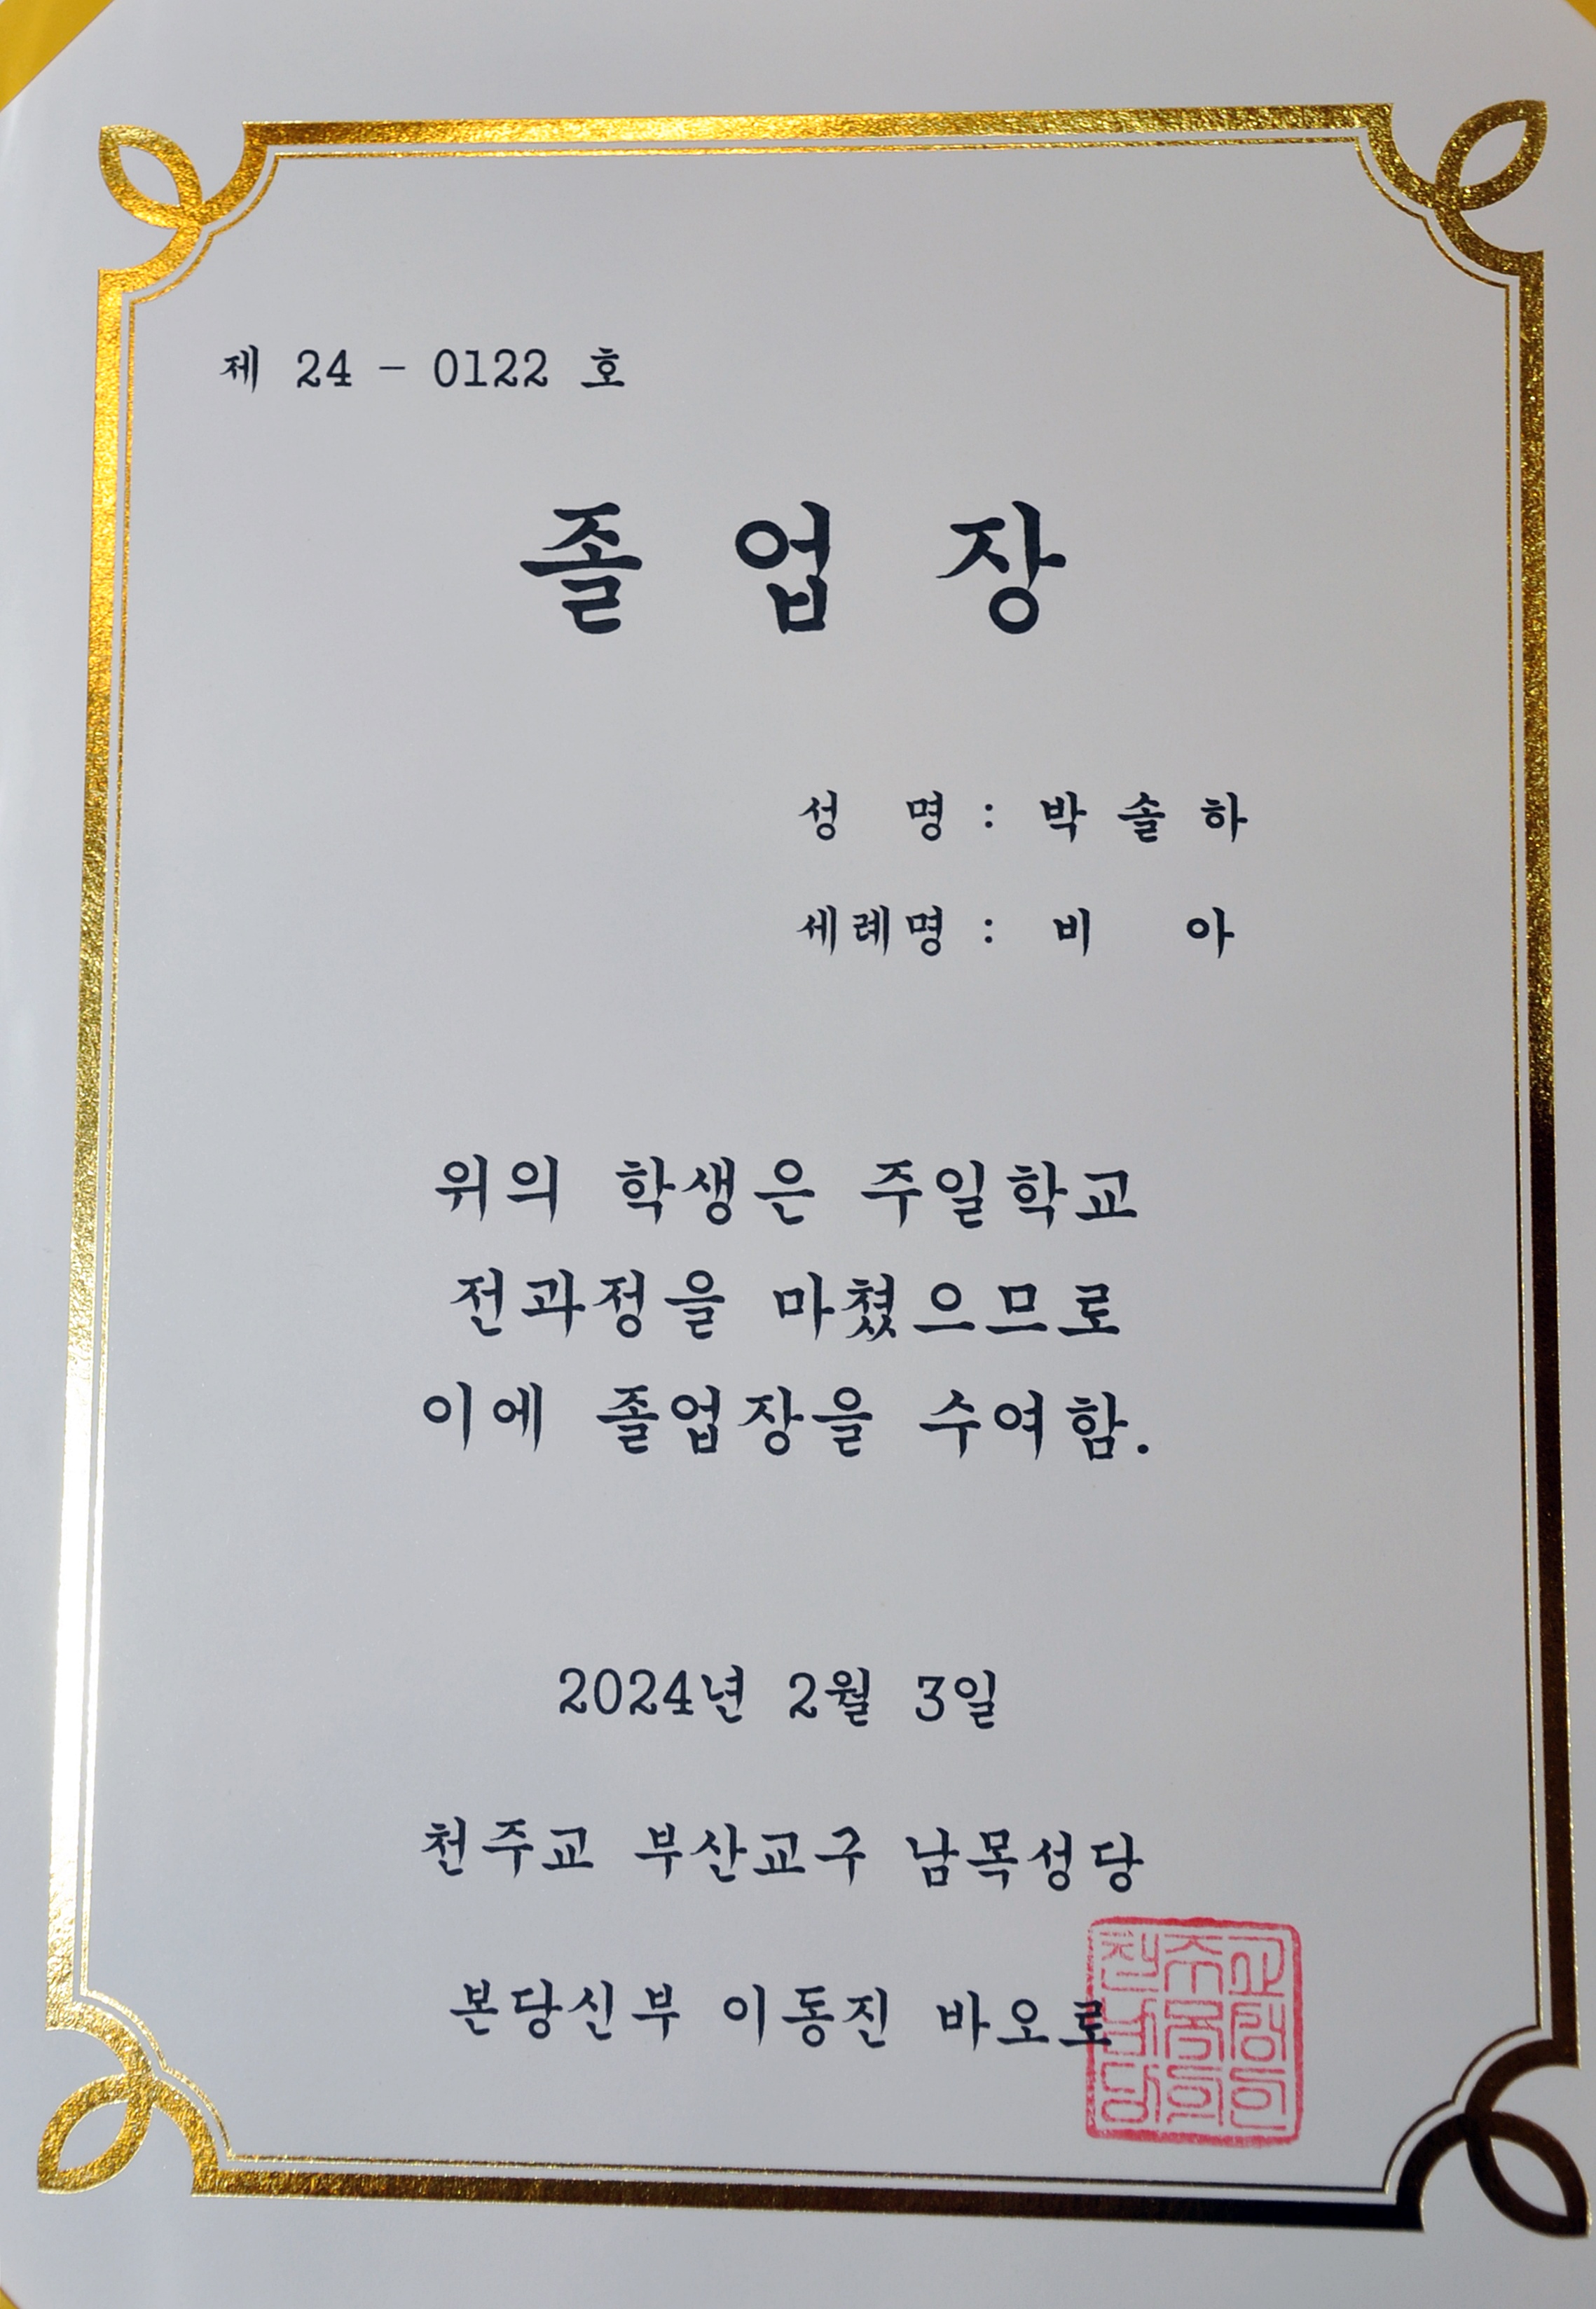 제 24 - 0122 호
졸 업 장
성 명 : 박 솔 하
세례명 : 비 아
위의 학생은 주일학교
전과정을 마쳤으므로
이에 졸업장을 수여함.
2024년 2월 3일
천주교 부산교구 남목성당
본당신부 이동진 바오로
천주교
남목성
당의인